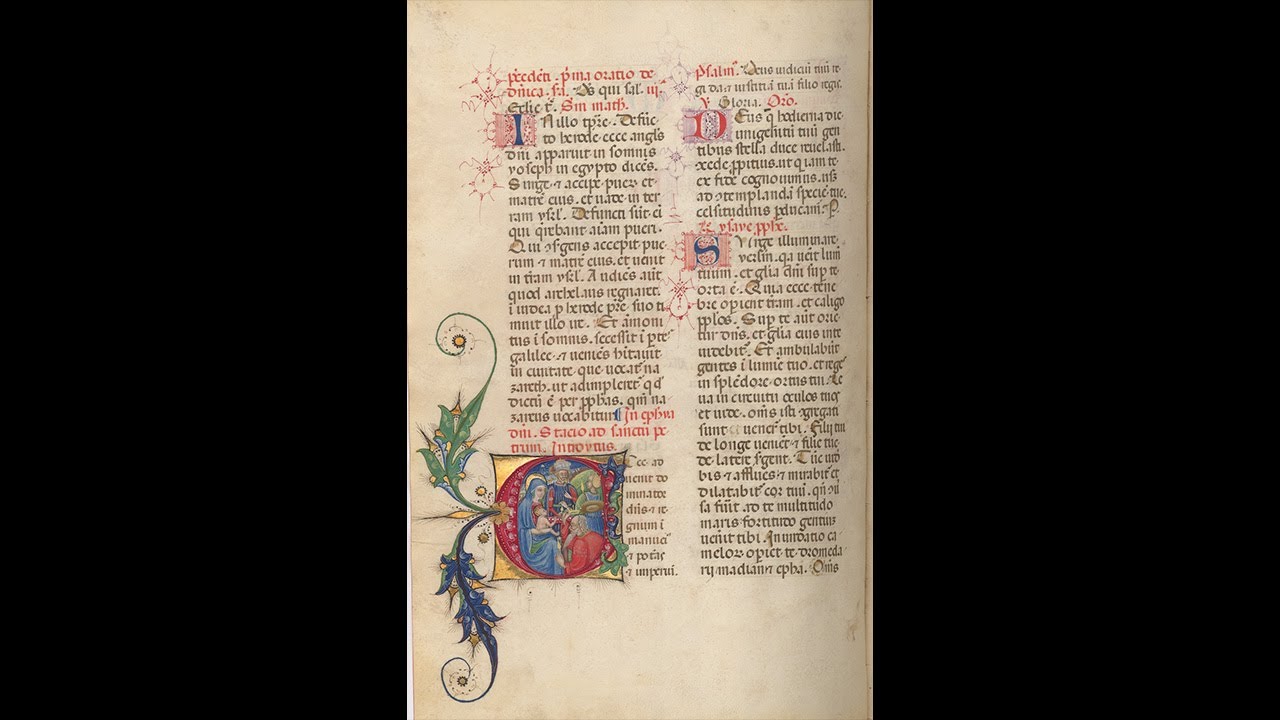 p̄cedēti. p̄ma oratio de
dn̄ica. fa. Ds qui sal. iij.
Ecclie t̄. Sm̄ math̄.
IN illo tp̄re. Defūc
to herode ecce angl̄s
dn̄i apparuit in somnis
yoseph in egypto dicēs.
Surge ⁊ accipe puer̄ et
matrē eius. et uade in ter
ram ysrl̄. Defuncti sūt ei
qui q̄rebant aīam pueri.
Qui ꝯsurgens accepit pue
rum ⁊ matrē eius. et uenit
in tr̄am ysrl̄. Audiēs aūt
quod archelaus regnaret
ī iudea p̄ herode p̄re suo ti
muit illo ire. Et āmoni
tus ī somnis. secessit ī p̄tes
galilee ⁊ ueniēs h̄itauit
in ciuitate que uocat̄ na
zareth. ut adimpleret̄ qd̄
dictū ē per pphas. qm̄ na
zareus uocabitur. In ephia
dn̄i. Stacio ad sanctū pe
trum. Introytus.
Ecce ad
uenit do
minator
dn̄s ⁊ re
gnum ī
manu ei
⁊ potās
⁊ imperiū.
Psalm̄. Deus iudiciū tuū re
gi da ⁊ iustitiā tuā filio regis.
V̄ Gloria. Oro.
DEus q̄ hodierna die
unigenitū tuū gen
tibus stella duce reuelasti.
ꝯcede ppitius. ut qui iam te
ex fide cognouimus. usq̄
ad ꝯtemplandā speciē tue
celsitudinis perducam̄. P.
Lc̄ ysaye pphe.
SUrge illuminare
yerlm̄. qa uenit lum̄
tuum. et glia dn̄i sup̄ te
orta ē. Quia ecce tene
bre operient tr̄am. et caligo
pplos. Sup̄ te aūt orie
tur dn̄s. et glia eius in te
uidebit̄. Et ambulabūt
gentes ī lumine tuo. et reges
in splēdore ortus tui. Le
ua in circuitu oculos tuos
et uide. om̄s isti ꝯgregati
sunt uener̄t tibi. Filij tui
de longe uenient ⁊ filie tue
de latere surgent. Tūc uide
bis ⁊ afflues ⁊ mirabit̄ et
dilatabit̄ cor tuū. qn̄ ꝯuer
sa fūit ad te multitudo
maris fortitudo gentium
uenit̄ tibi. Inundatio ca
melor̄ operiet te dromeda
rij madian ⁊ epha. Om̄s